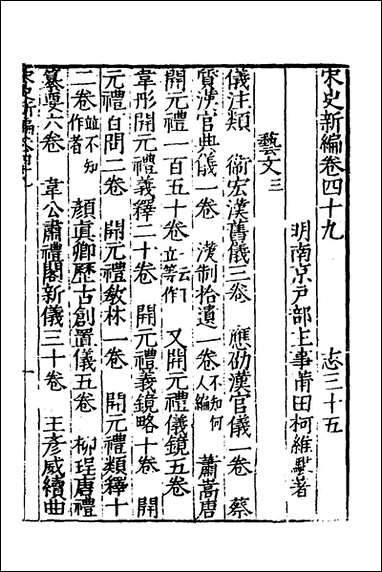 宋史新編卷四十九　志三十五
明南京戶部主事莆田柯維騏著
藝文三
儀注類　衞宏漢舊儀三卷　應劭漢官儀一卷　蔡
質漢官典儀一卷　漢制拾遺一卷不知何人編　蕭嵩唐
開元禮一百五十卷一云王立等作　又開元禮儀鏡五卷
韋彤開元禮義釋二十卷　開元禮義鏡略十卷　開
元禮百問二卷　開元禮敎林一卷　開元禮類釋十
二卷並不知作者　顏眞卿歷古創置儀五卷　柳珵唐禮
纂要六卷　韋公肅禮閣新儀三十卷　王彥威續曲
宋史新編卷四十九
一